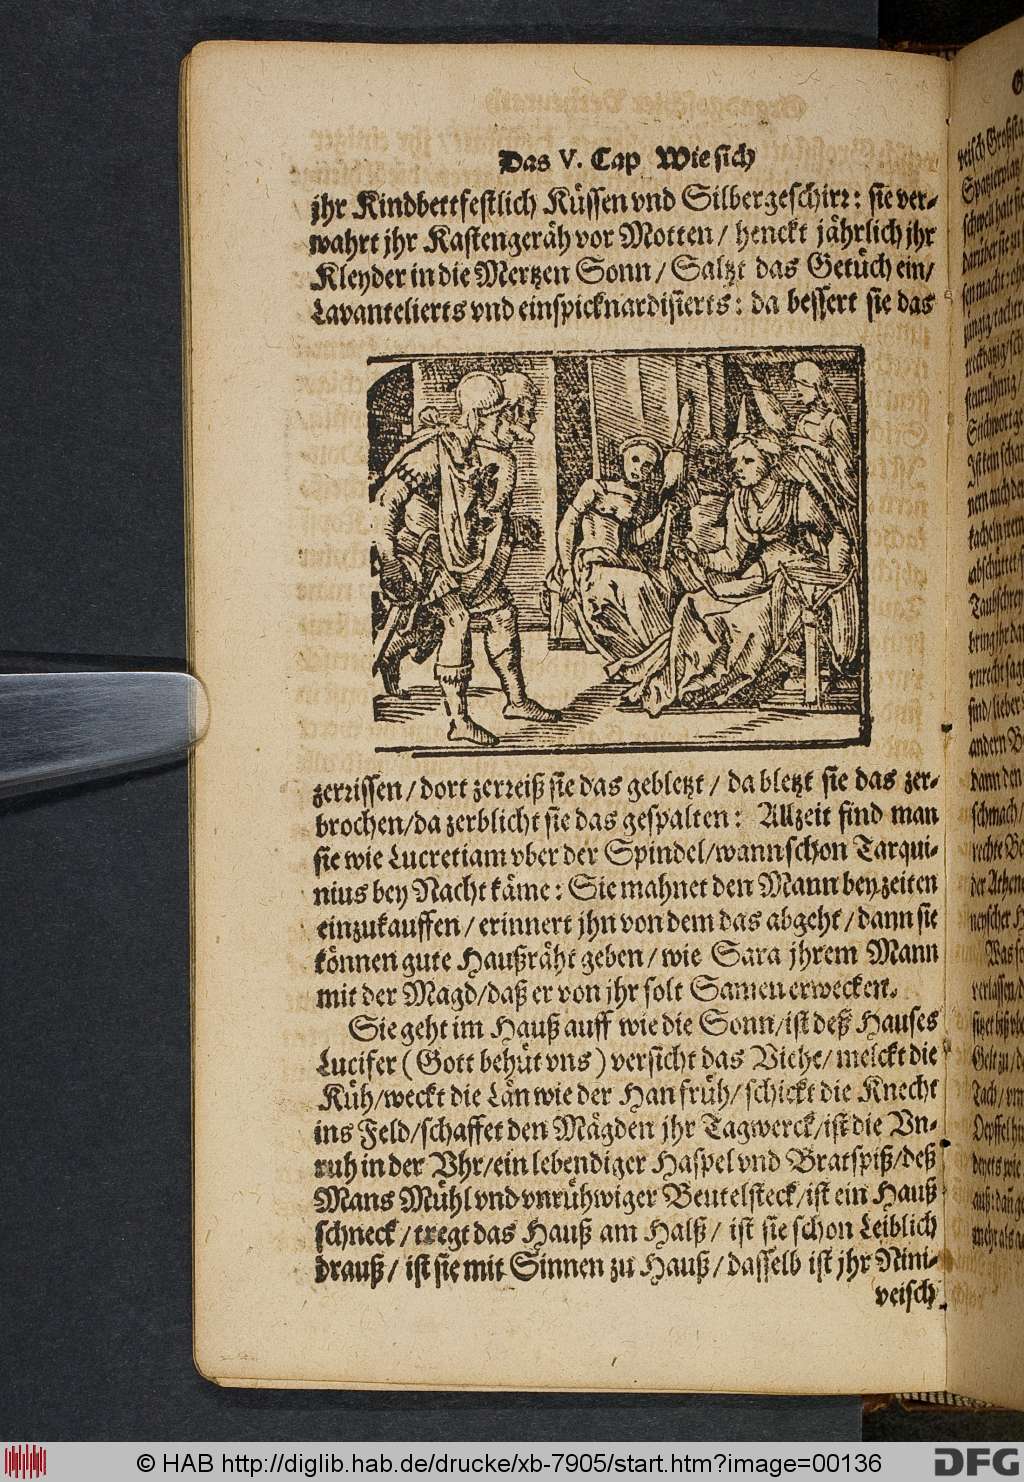 Das V. Cap Wie sich
jhr Kindbettfestlich Küssen vnd Silbergeschirr: sie ver-
wahrt jhr Kastengeräh vor Motten / henckt jährlich jhr
Kleyder in die Mertzen Sonn / Saltzt das Getüch ein /
Lavantelierts vnd einspicknardisierts: da bessert sie das
zerrissen / dort zerreiß sie das gebletzt / da bletzt sie das zer-
brochen / da zerblicht sie das gespalten: Allzeit find man
sie wie Lucretiam vber der Spindel / wann schon Tarqui-
nius bey Nacht käme: Sie mahnet den Mann bey zeiten
einzukauffen / erinnert jhn von dem das abgeht / dann sie
können gute Haußräht geben / wie Sara jhrem Mann
mit der Magd / daß er von jhr solt Samen erwecken.
Sie geht im Hauß auff wie die Sonn / ist deß Hauses
Lucifer ( Gott behüt vns ) versicht das Viehe / melckt die
Küh / weckt die Län wie der Han früh / schickt die Knecht
ins Feld / schaffet den Mägden jhr Tagwerck / ist die Vn-
ruh in der Vhr / ein lebendiger Haspel vnd Bratspiß / deß
Mans Mühl vnd vnrühwiger Beutelsteck / ist ein Hauß
schneck / tregt das Hauß am Halß / ist sie schon Leiblich
drauß / ist sie mit Sinnen zu Hauß / dasselb ist jhr Nini-
veisch
© HAB http://diglib.hab.de/drucke/xb-7905/start.htm?image=00136
DFG